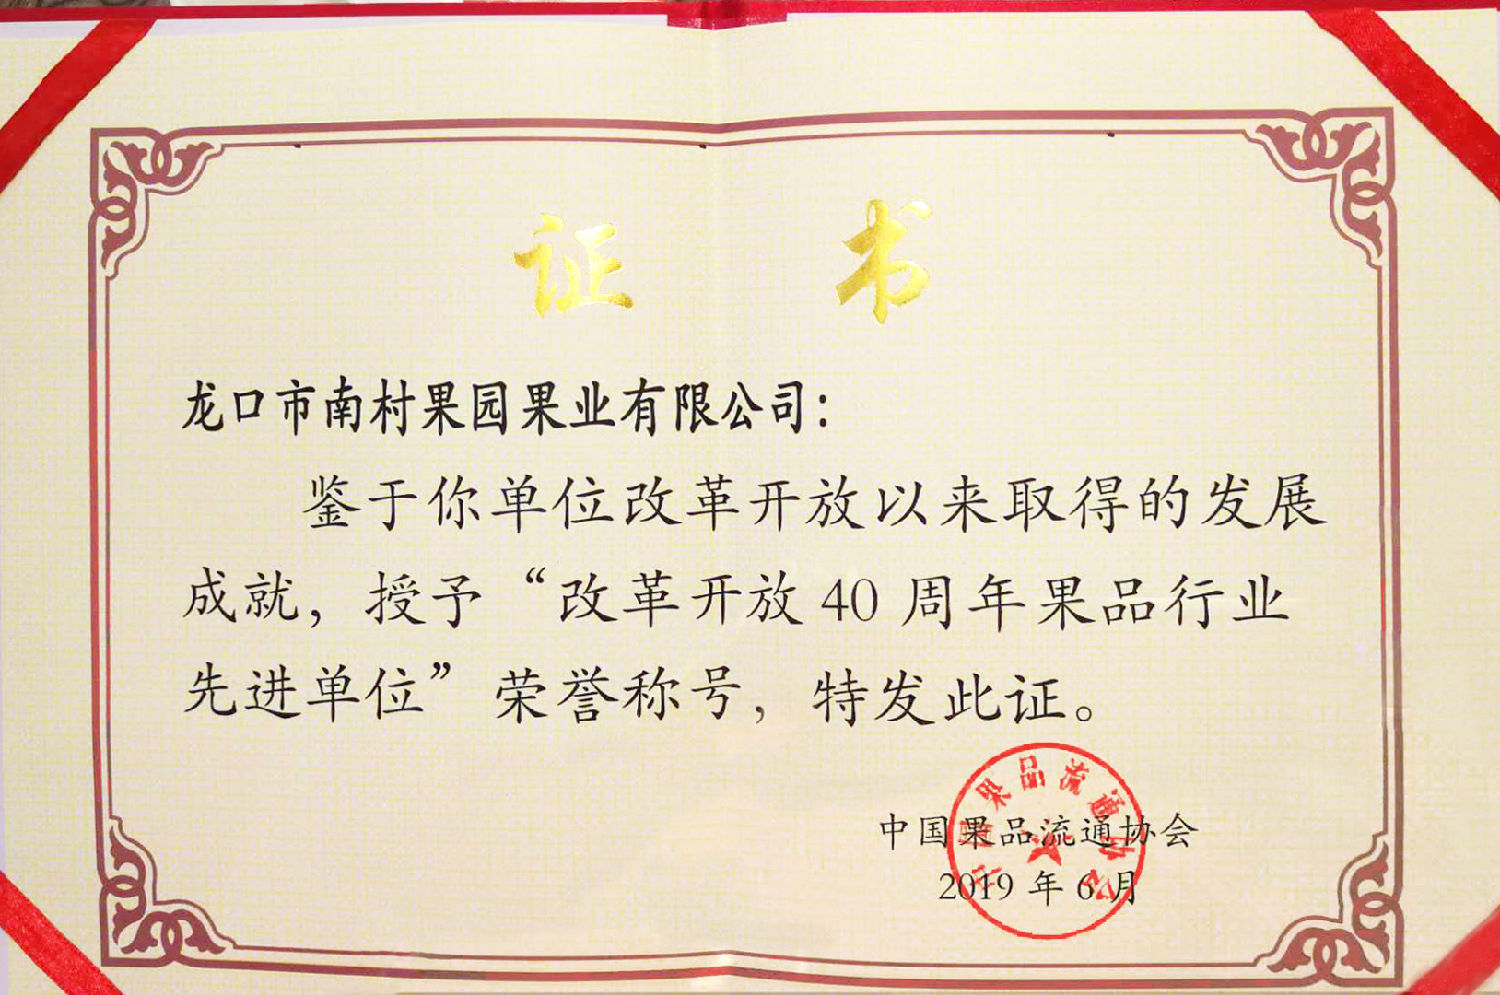 证书
龙口市南村果园果业有限公司：
鉴于你单位改革开放以来取得的发展
成就，授予“改革开放40周年果品行业
先进单位”荣誉称号，特发此证。
中国果品流通协会
2019年6月
中国果品流通协会